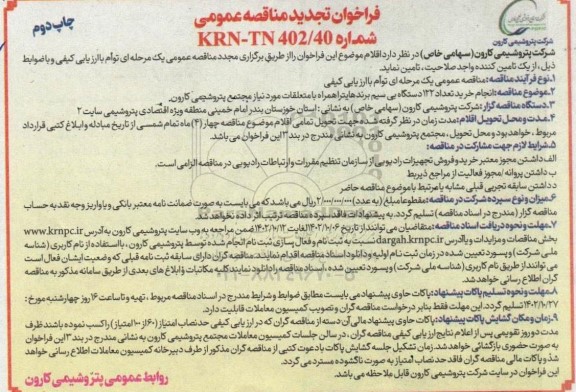 فراخوان تجدید مناقصه عمومی
شماره KRN-TN 402/40
چاپ دوم
شرکت پتروشیمی کارون
شرکت پتروشیمی کارون (سهامی خاص) در نظر دارد اقلام موضوع این فراخوان را از طریق برگزاری مجدد مناقصه عمومی یک مرحله ای توأم با ارزیابی کیفی و با ضوابط
ذیل، از یک تامین کننده واجد صلاحیت، تامین نماید.
۱.نوع فرآیند مناقصه: مناقصه عمومی یک مرحله ای توأم با ارزیابی کیفی
۲.موضوع مناقصه: انجام خرید تعداد ۱۲۲ دستگاه بی سیم برند هایترا همراه با متعلقات مورد نیاز مجتمع پتروشیمی کارون.
۳.دستگاه مناقصه گزار: شرکت پتروشیمی کارون (سهامی خاص) به نشانی: استان خوزستان بندر امام خمینی منطقه ویژه اقتصادی پتروشیمی سایت ۲
۴.مدت و محل تحویل اقلام: مدت زمان در نظر گرفته شده جهت تحویل تمامی اقلام موضوع مناقصه چهار (۴) ماه تمام شمسی از تاریخ مبادله و ابلاغ کتبی قرارداد
مربوط، خواهد بود و محل تحویل، مجتمع پتروشیمی کارون به نشانی مندرج در بند ۳ این فراخوان می باشد.
۵.شرایط لازم جهت مشارکت در مناقصه:
الف داشتن مجوز معتبر خرید و فروش تجهیزات رادیویی از سازمان تنظیم مقررات و ارتباطات رادیویی در مناقصه الزامی است.
ب داشتن پروانه/مجوز فعالیت از مراجع ذیربط
د داشتن سابقه تجربی قبلی مشابه یا مرتبط با موضوع مناقصه حاضر
۶.میزان و نوع سپرده شرکت در مناقصه: مقطوعاً مبلغ (به عدد) ۲/۰۰۰/۰۰۰/۰۰۰ ریال می باشد که می بایست به صورت ضمانت نامه معتبر بانکی و یا واریز وجه نقد به حساب
مناقصه گزار (مندرج در اسناد مناقصه) تسلیم گردد. به پیشنهادات فاقد سپرده مناقصه ترتیب اثر داده نخواهد شد.
۷.مهلت و نحوه دریافت اسناد مناقصه: متقاضیان می توانند از تاریخ ۱۴۰۲/۱۰/۰۶ لغایت ۱۴۰۲/۱۰/۱۲ ضمن مراجعه به وب سایت پتروشیمی کارون به آدرس www.krnpc.ir
بخش مناقصات و مزایدات و یا آدرس dargah.krnpc.ir نسبت به ثبت نام و فعال سازی ثبت نام انجام شده توسط پتروشیمی کارون، با استفاده از نام کاربری (شناسه
ملی شرکت) و پسورد تعیین شده در زمان ثبت نام اولیه و دانلود اسناد مناقصه اقدام نمایند. مناقصه گران دارای سابقه ثبت نامه قبلی که وضعیت ایشان فعال است
می توانند از طریق نام کاربری (شناسه ملی شرکت) و پسورد تعیین شده، اسناد مناقصه را دانلود نمایند کلیه مکاتبات و ابلاغ های بعدی از طریق سامانه مذکور به مناقصه
گران اطلاع رسانی خواهد شد.
۸.مهلت و نحوه تسلیم پاکات پیشنهاد: پاکات حاوی پیشنهاد می بایست مطابق ضوابط و شرایط مندرج در اسناد مناقصه مربوط، تهیه و تا ساعت ۱۶ روز چهارشنبه مورخ:
۱۴۰۲/۱۰/۲۷ تسلیم گردد. این مهلت فقط بنابر درخواست مناقصه گران و تصویب کمیسیون معاملات قابلیت دارد.
۹.زمان و مکان گشایش پاکات پیشنهاد: پاکات حاوی پیشنهاد مالی آن دسته از مناقصه گران که در ارزیابی کیفی حد نصاب امتیاز (۶۰ از ۱۰۰ امتیاز) را کسب نموده باشند ظرف
مدت دو روز تقویمی پس از اعلام نتایج ارزیابی کیفی مناقصه گران، در سالن جلسات کمیسیون معاملات مجتمع پتروشیمی کارون به نشانی مندرج در بند ۳ این فراخوان
به صورت حضوری بازگشائی خواهد شد. زمان تشکیل جلسه گشایش پاکات با دعوت کتبی از مناقصه گران مذکور از طرف دبیرخانه کمیسیون معاملات اطلاع رسانی خواهد
شد و پاکات مالی مناقصه گران فاقد حد نصاب امتیاز به صورت ناگشوده مسترد می گردد.
این فراخوان در سایت شرکت پتروشیمی کارون قابل ملاحظه می باشد.
روابط عمومی پتروشیمی کارون